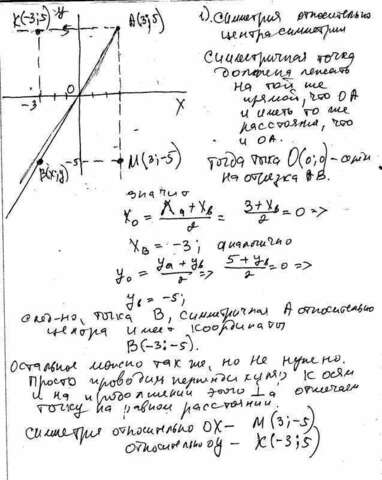 K(-3;5) y
5
A(3;5)
-3
0
X
B(x;y)
-5
M(3;-5)
1). Симетрия относительно
центра симетрии
Симметричная точка
должена лежать
на той же
прямой, что OA
и иметь то же
расстояние, что
и OA.
Тогда точка O(0;0)-
на отрезка AB.
значит
X₀ = (Xa + Xb)/2 = (3+Xb)/2 = 0 =>
XB = -3; аналогично
y₀ = (ya + yb)/2 => (5+yb)/2 = 0 =>
yb = -5;
След-но, точка B, симметричная A относительно
центра имеет координаты
B(-3;-5).
Остальное можно так же, но не нужно.
Просто проводим перпендикуляр к осям
и на продолжении этого ⊥а отмечаем
точку на равном расстоянии.
Симетрия относительно OX - M(3;-5)
относительно OY - K(-3;5)